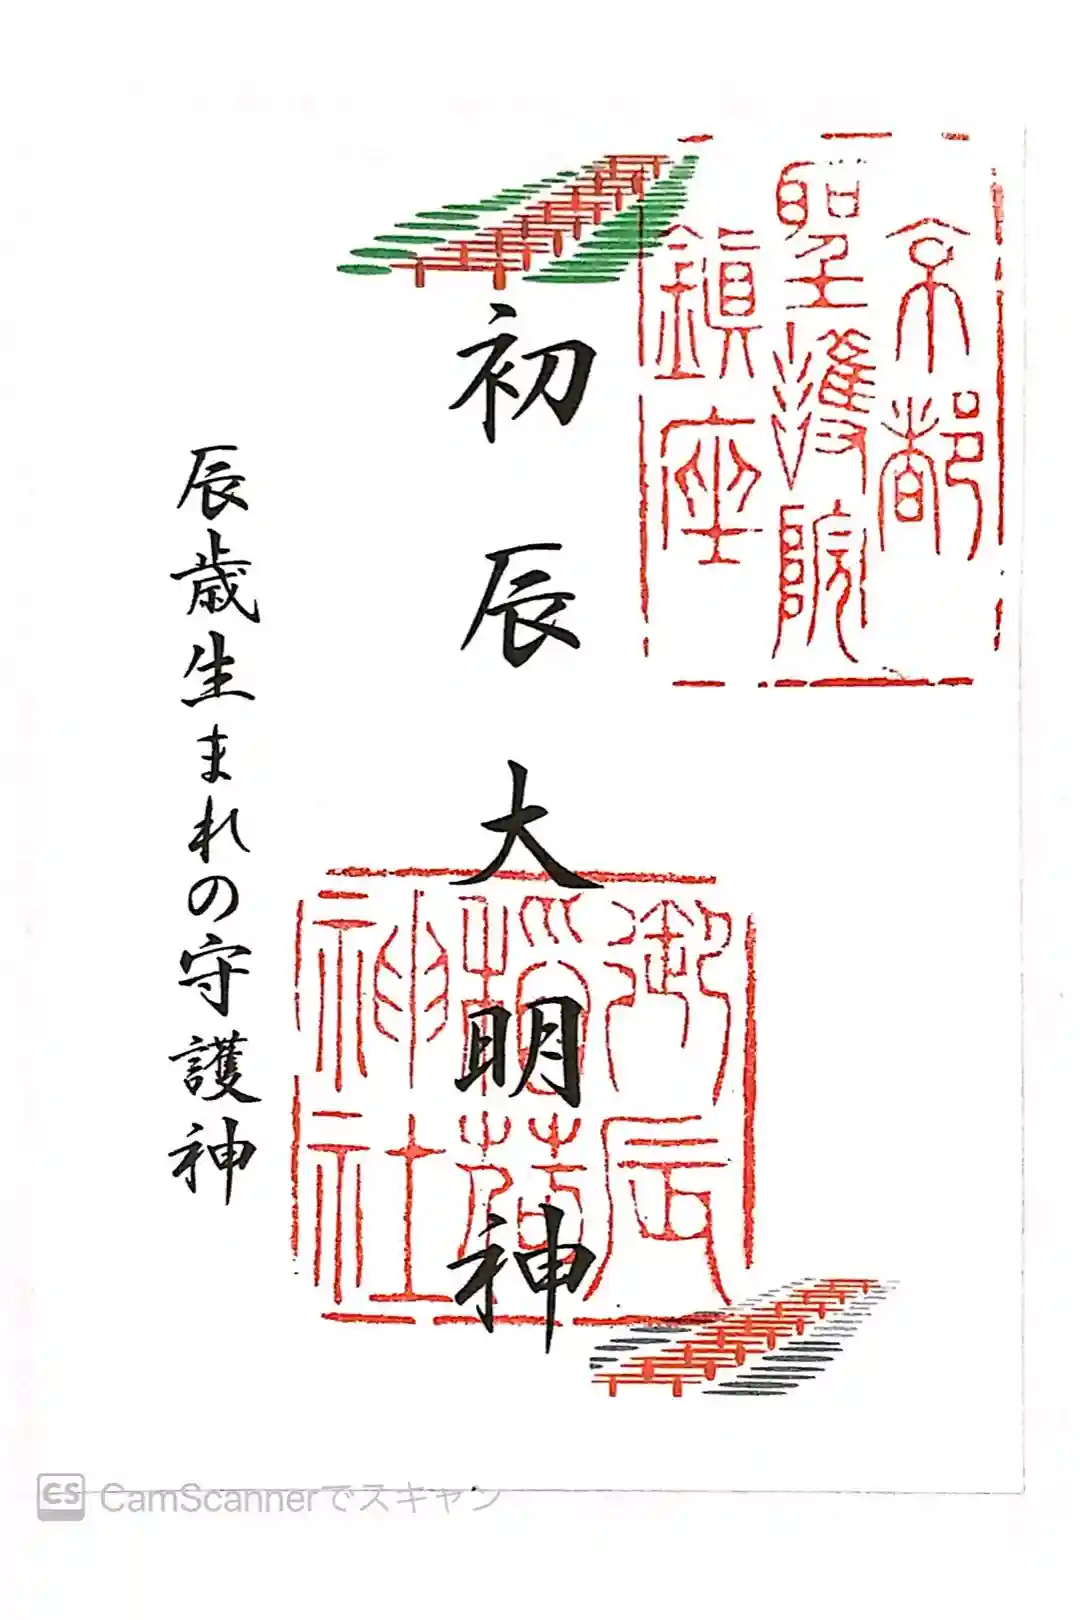 京都
聖護院
鎮座
初辰大明神
御辰
稲荷
神社
辰歳生まれの守護神
CS CamScannerでスキャン